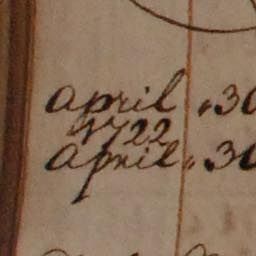 April 30
1722
April 30